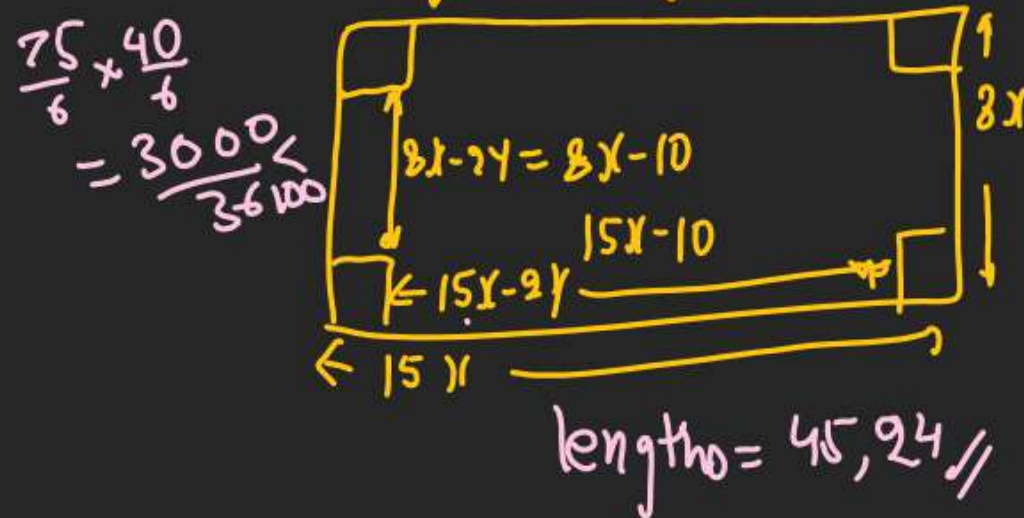 75/6 × 40/6
= 3000/36 < 100
8x
8x-2y = 8x-10
15x-10
← 15x-2y
← 15x
lengths = 45, 24 //